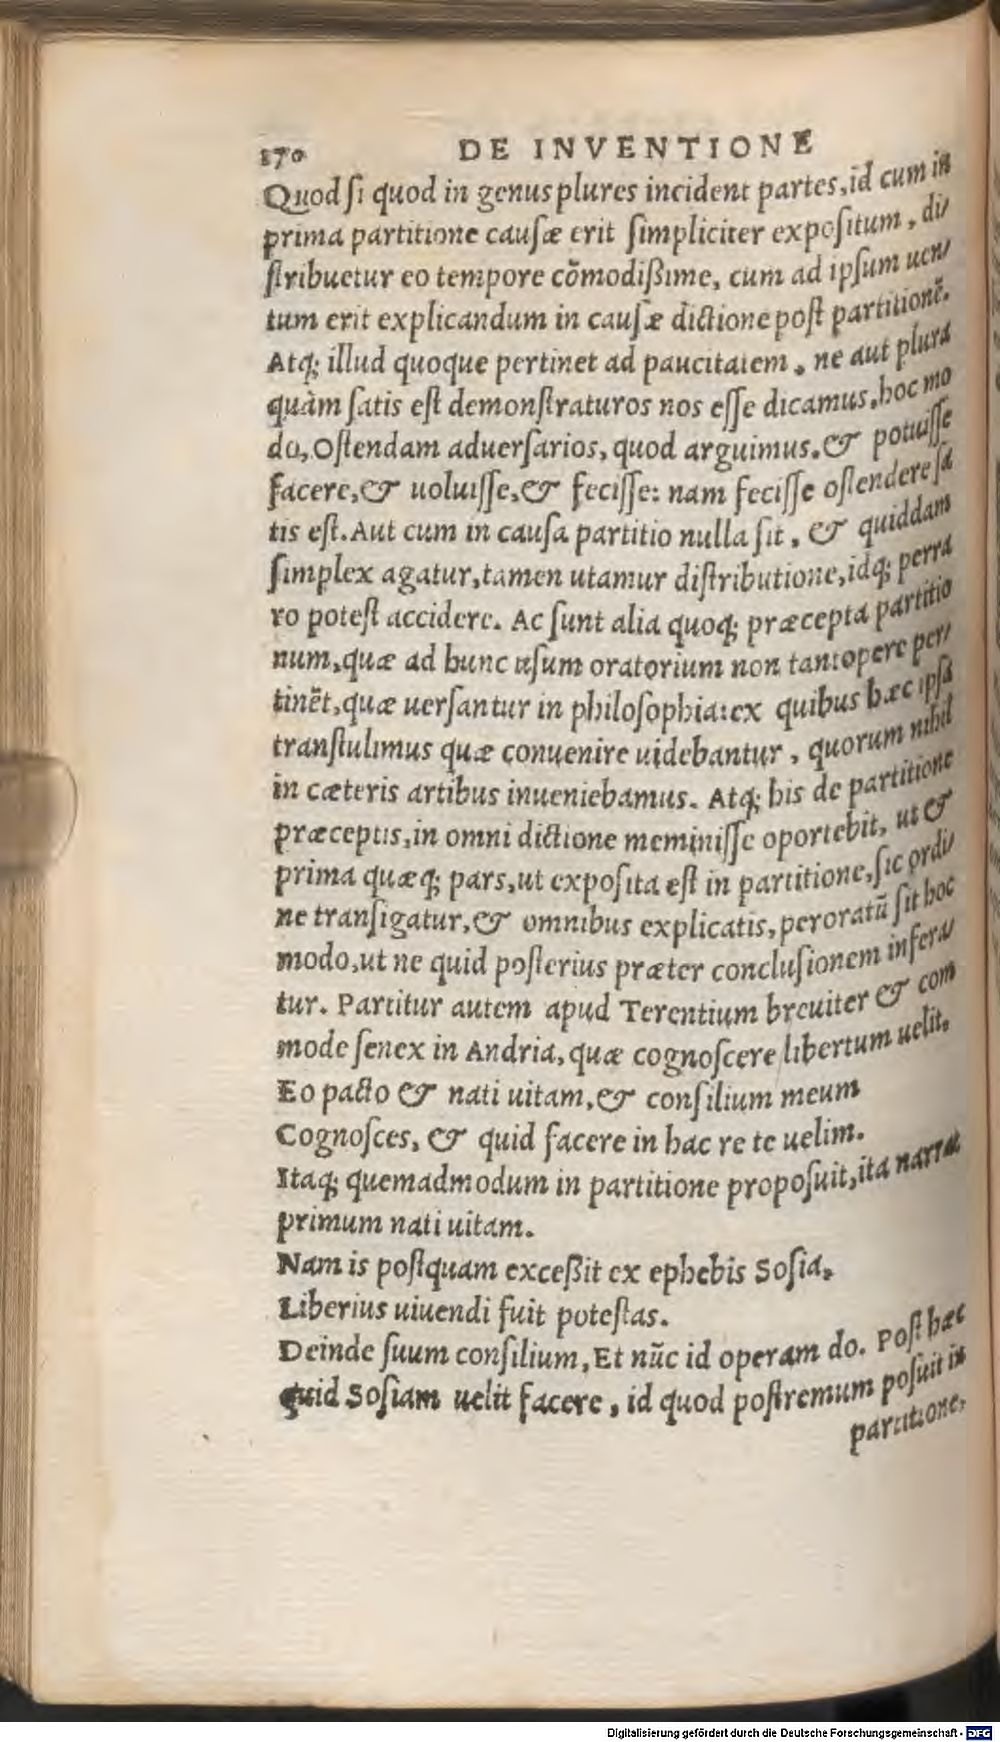 170 DE INVENTIONE
Quod ſi quod in genus plures incident partes, id cum in
prima partitione cauſæ erit ſimpliciter expoſitum, di/
ſtribuetur eo tempore cõmodißime, cum ad ipſum uen/
tum erit explicandum in cauſæ dictione poſt partitionẽ.
Atq; illud quoque pertinet ad paucitatem, ne aut plura
quàm ſatis eſt demonſtraturos nos eſſe dicamus, hoc mo
do, Oſtendam aduerſarios, quod arguimus, & potuiſſe
facere, & uoluiſſe, & feciſſe: nam feciſſe oſtendere ſa
tis eſt. Aut cum in cauſa partitio nulla ſit, & quiddam
ſimplex agatur, tamen utamur diſtributione, idq; perra
ro poteſt accidere. Ac ſunt alia quoq; præcepta partitio
num, quæ ad hunc uſum oratorium non tantopere per/
tinẽt, quæ uerſantur in philoſophia: ex quibus hæc ipſa
tranſtulimus quæ conuenire uidebantur, quorum nihil
in cæteris artibus inueniebamus. Atq; his de partitione
præceptis, in omni dictione meminiſſe oportebit, ut &
prima quæq; pars, ut expoſita eſt in partitione, ſic ordi/
ne tranſigatur, & omnibus explicatis, peroratũ ſit hoc
modo, ut ne quid poſterius præter concluſionem infera/
tur. Partitur autem apud Terentium breuiter & com
mode ſenex in Andria, quæ cognoſcere libertum uelit.
Eo pacto & nati uitam, & conſilium meum
Cognoſces, & quid facere in hac re te uelim.
Itaq; quemadmodum in partitione propoſuit, ita narrat
primum nati uitam.
Nam is poſtquam exceßit ex ephebis Soſia,
Liberius uiuendi fuit poteſtas.
Deinde ſuum conſilium, Et nũc id operam do. Poſt hæc
quid Soſiam uelit facere, id quod poſtremum poſuit in
partitione,
Digitalisierung gefördert durch die Deutsche Forschungsgemeinschaft - DFG